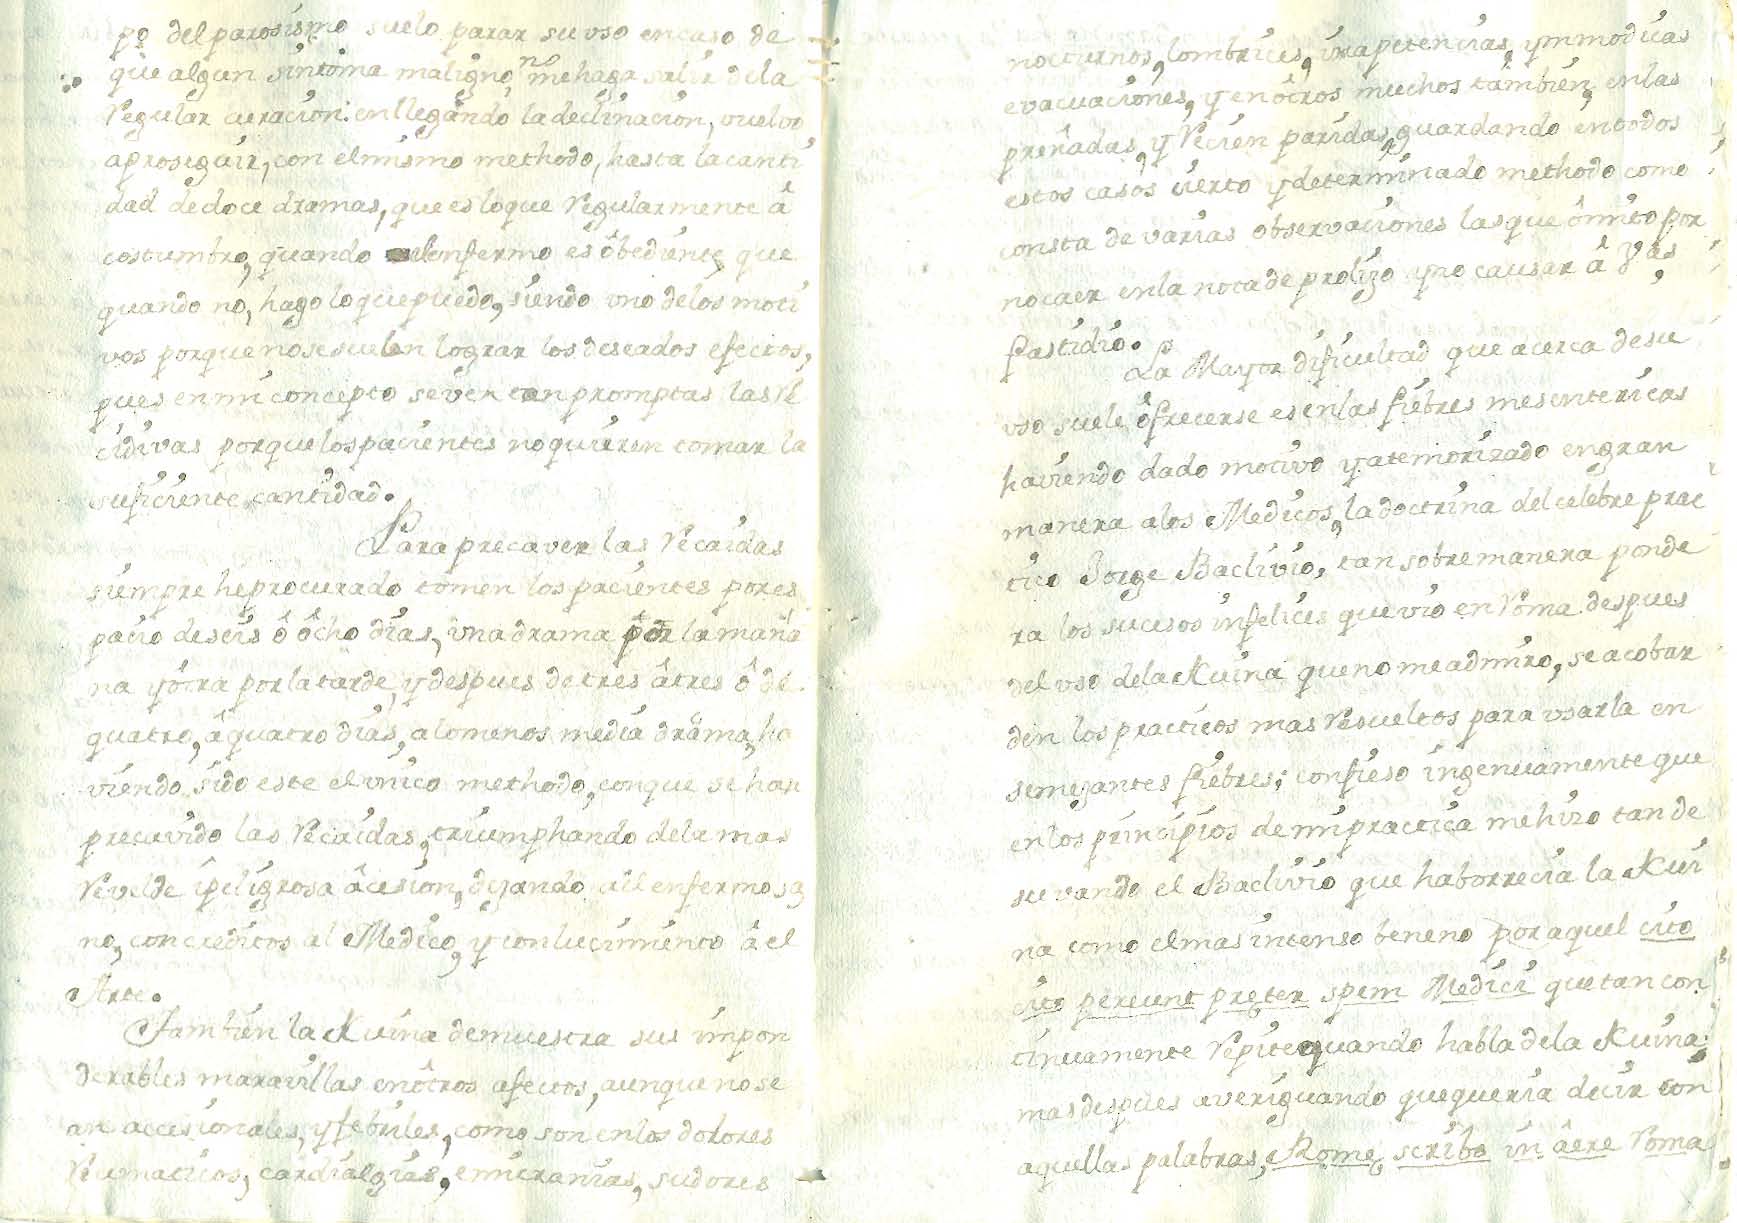 po del parosismo suelo parar su uso en caso de
que algun sintoma maligno no me haga salir de la
Regular curacion: en llegando la declinacion, vuelvo
a proseguir, con el mismo methodo, hasta la canti
dad de doce dramas, que es lo que Regularmente â
costumbro, quando el enfermo es ôbediente, que
quando no, hago lo que puedo, siendo uno de los moti
vos porque no se suelen lograr los deseados efectos,
pues en mi concepto se ven tan promptas las Re
cidivas porque los pacientes no quieren tomar la
suficiente cantidad.
Para precaver las Recaidas
siempre he procurado tomen los pacientes por es
pacio de seis ô ôcho dias, una drama por la maña
na y otra por la tarde, y despues de tres âtres ô de
quatro, â quatro dias, a lo menos media drama, ha
viendo sido este el unico methodo, con que se han
precavido las Recaidas, triumphando de la mas
Revelde i peligrosa âcesion, dejando aêl enfermo sa
no, con creditos al Medico, y con lucimiento â el
Arte.
Tambien la Kuina demuestra sus impon
derables maravillas en ôtros afectos, aunque no se
an accesionales, y febriles, como son en los dolores
Reumaticos, cardialgias, emicranias, sudores
nocturnos, lombrices, inapetencias, ymmodicas
evacuaciones, y en ôtros muchos tambien, en las
preñadas, y Recien paridas, guardando en todos
estos casos cierto y determinado methodo como
consta de varias observaciones las que ômito por
no caer en la nota de prolijo y no causar â Vas
fastidio.
La Mayor dificultad que acerca de su
uso suele ôfrecerse es en las fiebres mesentericas
haviendo dado motivo y atemorizado en gran
manera a los Medicos, la doctrina del celebre prac
tico Jorge Baclivio, tan sobremanera ponde
ra los sucesos infelices que vio en Roma despues
del uso de la Kuina que no me admiro, se acobar
den los practicos mas Resueltos para usarla en
semejantes fiebres; confieso ingenuamente que
en los principios de mi practica me hizo tan de
su vando el Baclivio que haborrecia la Kui
na como el mas intenso beneno por aquel cito
cito pereunt preter spem Medici que tan con
tinuamente Repite quando habla de la Kuina;
mas despues averiguando que queria decir con
aquellas palabras, Rome scribo in âere Roma